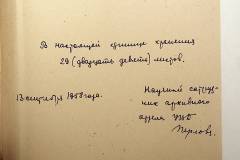 В настоящей единице хранения
29 (двадцать девять) листов.
13 сентября 1958 года.
Научный сотруд-
ник архивного
отдела
Перлов.